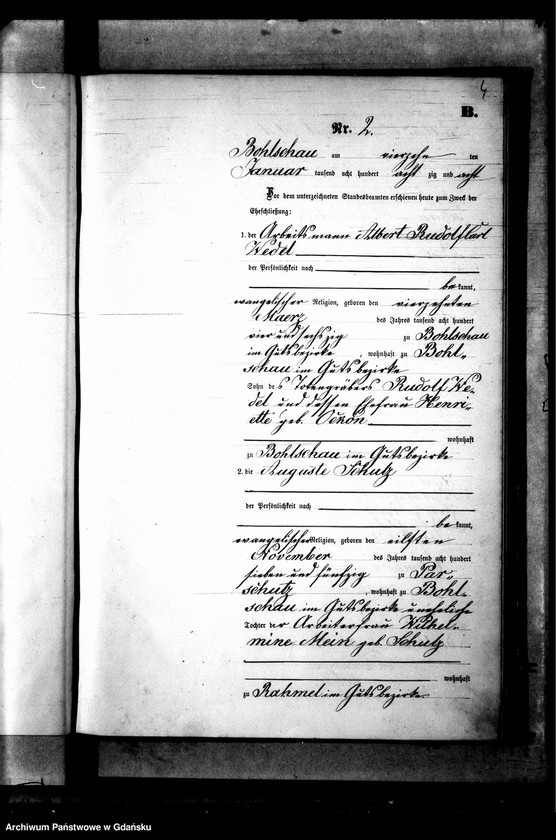 4
B.
Nr. 2.
Bohlschau am vierzehn ten
Januar tausend acht hundert acht zig und acht
Vor dem unterzeichneten Standesbeamten erschienen heute zum Zweck der
Eheschließung:
1. der Arbeitsmann Albert Rudolf Carl
Wedel
der Persönlichkeit nach
be kannt,
evangelischer Religion, geboren den vierzehnten
Maerz des Jahres tausend acht hundert
vier und sechszig zu Bohlschau
im Gutsbezirke, wohnhaft zu Bohl-
schau im Gutsbezirke
Sohn des Totengräbers Rudolf We-
del und dessen Ehefrau Henri-
ette geb.
wohnhaft
zu Bohlschau im Gutsbezirke
2. die Auguste Schutz
der Persönlichkeit nach
be kannt,
evangelischer Religion, geboren den eilften
November des Jahres tausend acht hundert
sieben und fünfzig zu Par-
schutz, wohnhaft zu Bohl-
schau im Gutsbezirke uneheliche
Tochter der Arbeiterfrau Wilhel-
mine Mein geb. Schutz
wohnhaft
zu Rahmel im Gutsbezirke
Archiwum Państwowe w Gdańsku